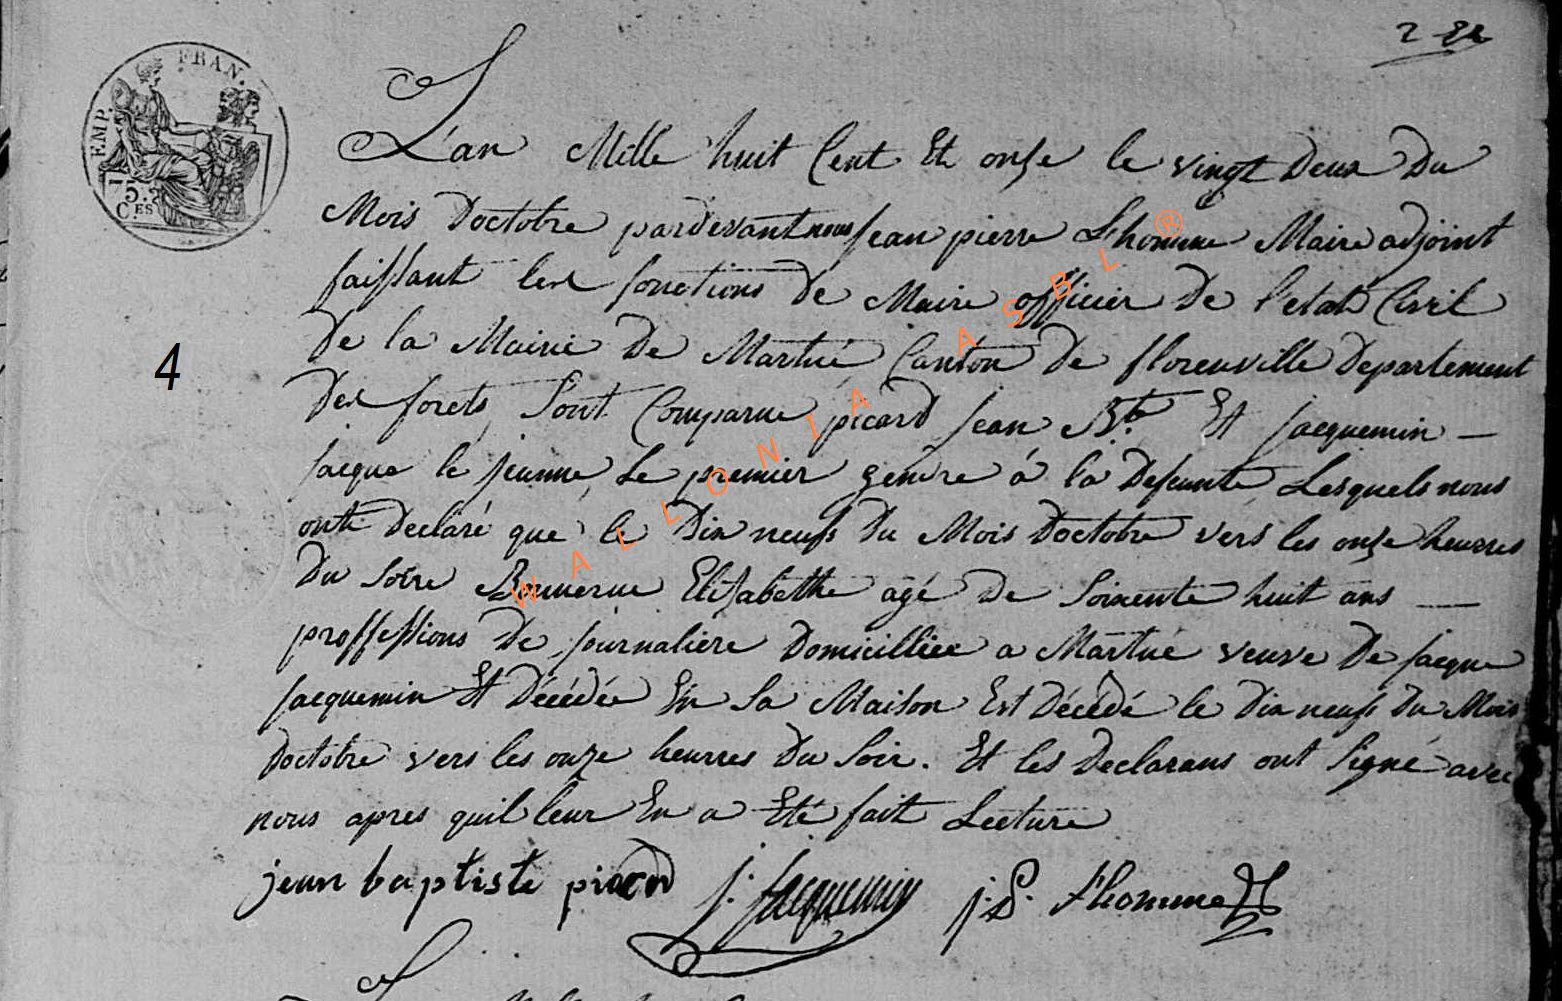 2
EMP. FRAN.
75. CES
L'an Mille huit Cent Et onze le vingt Deux Du
Mois Doctobre pardevant nous jean pierre L'homme Maire adjoint
faissant les fonctions De Maire officier De l'etat Civil
De la Mairie De Martué Canton De florenville Departement
Des forets, Sont Comparue picard jean Bte. Et jacquemin —
jacque le jeunne, Le premier gendre à la Defunte Lesquels nous
onts Declaré que le Dix neufs Du Mois Doctobre vers les onze heurres
Du Soire Elisabethe agé De Soixente huit ans —
proffessions De journaliere Domicilliee a Martué veuve De jacque
jacquemin Et Décédée En Sa Maison Est Décédé le Dix neufs Du Mois
Doctobre vers les onze heurres Du Soir. Et les Declarans ont Signé avec
nous apres quil leur En a Eté fait Lecture
jean baptiste picard j. jacquemin j. P. L'homme
4
WALLONIA ASBL ®